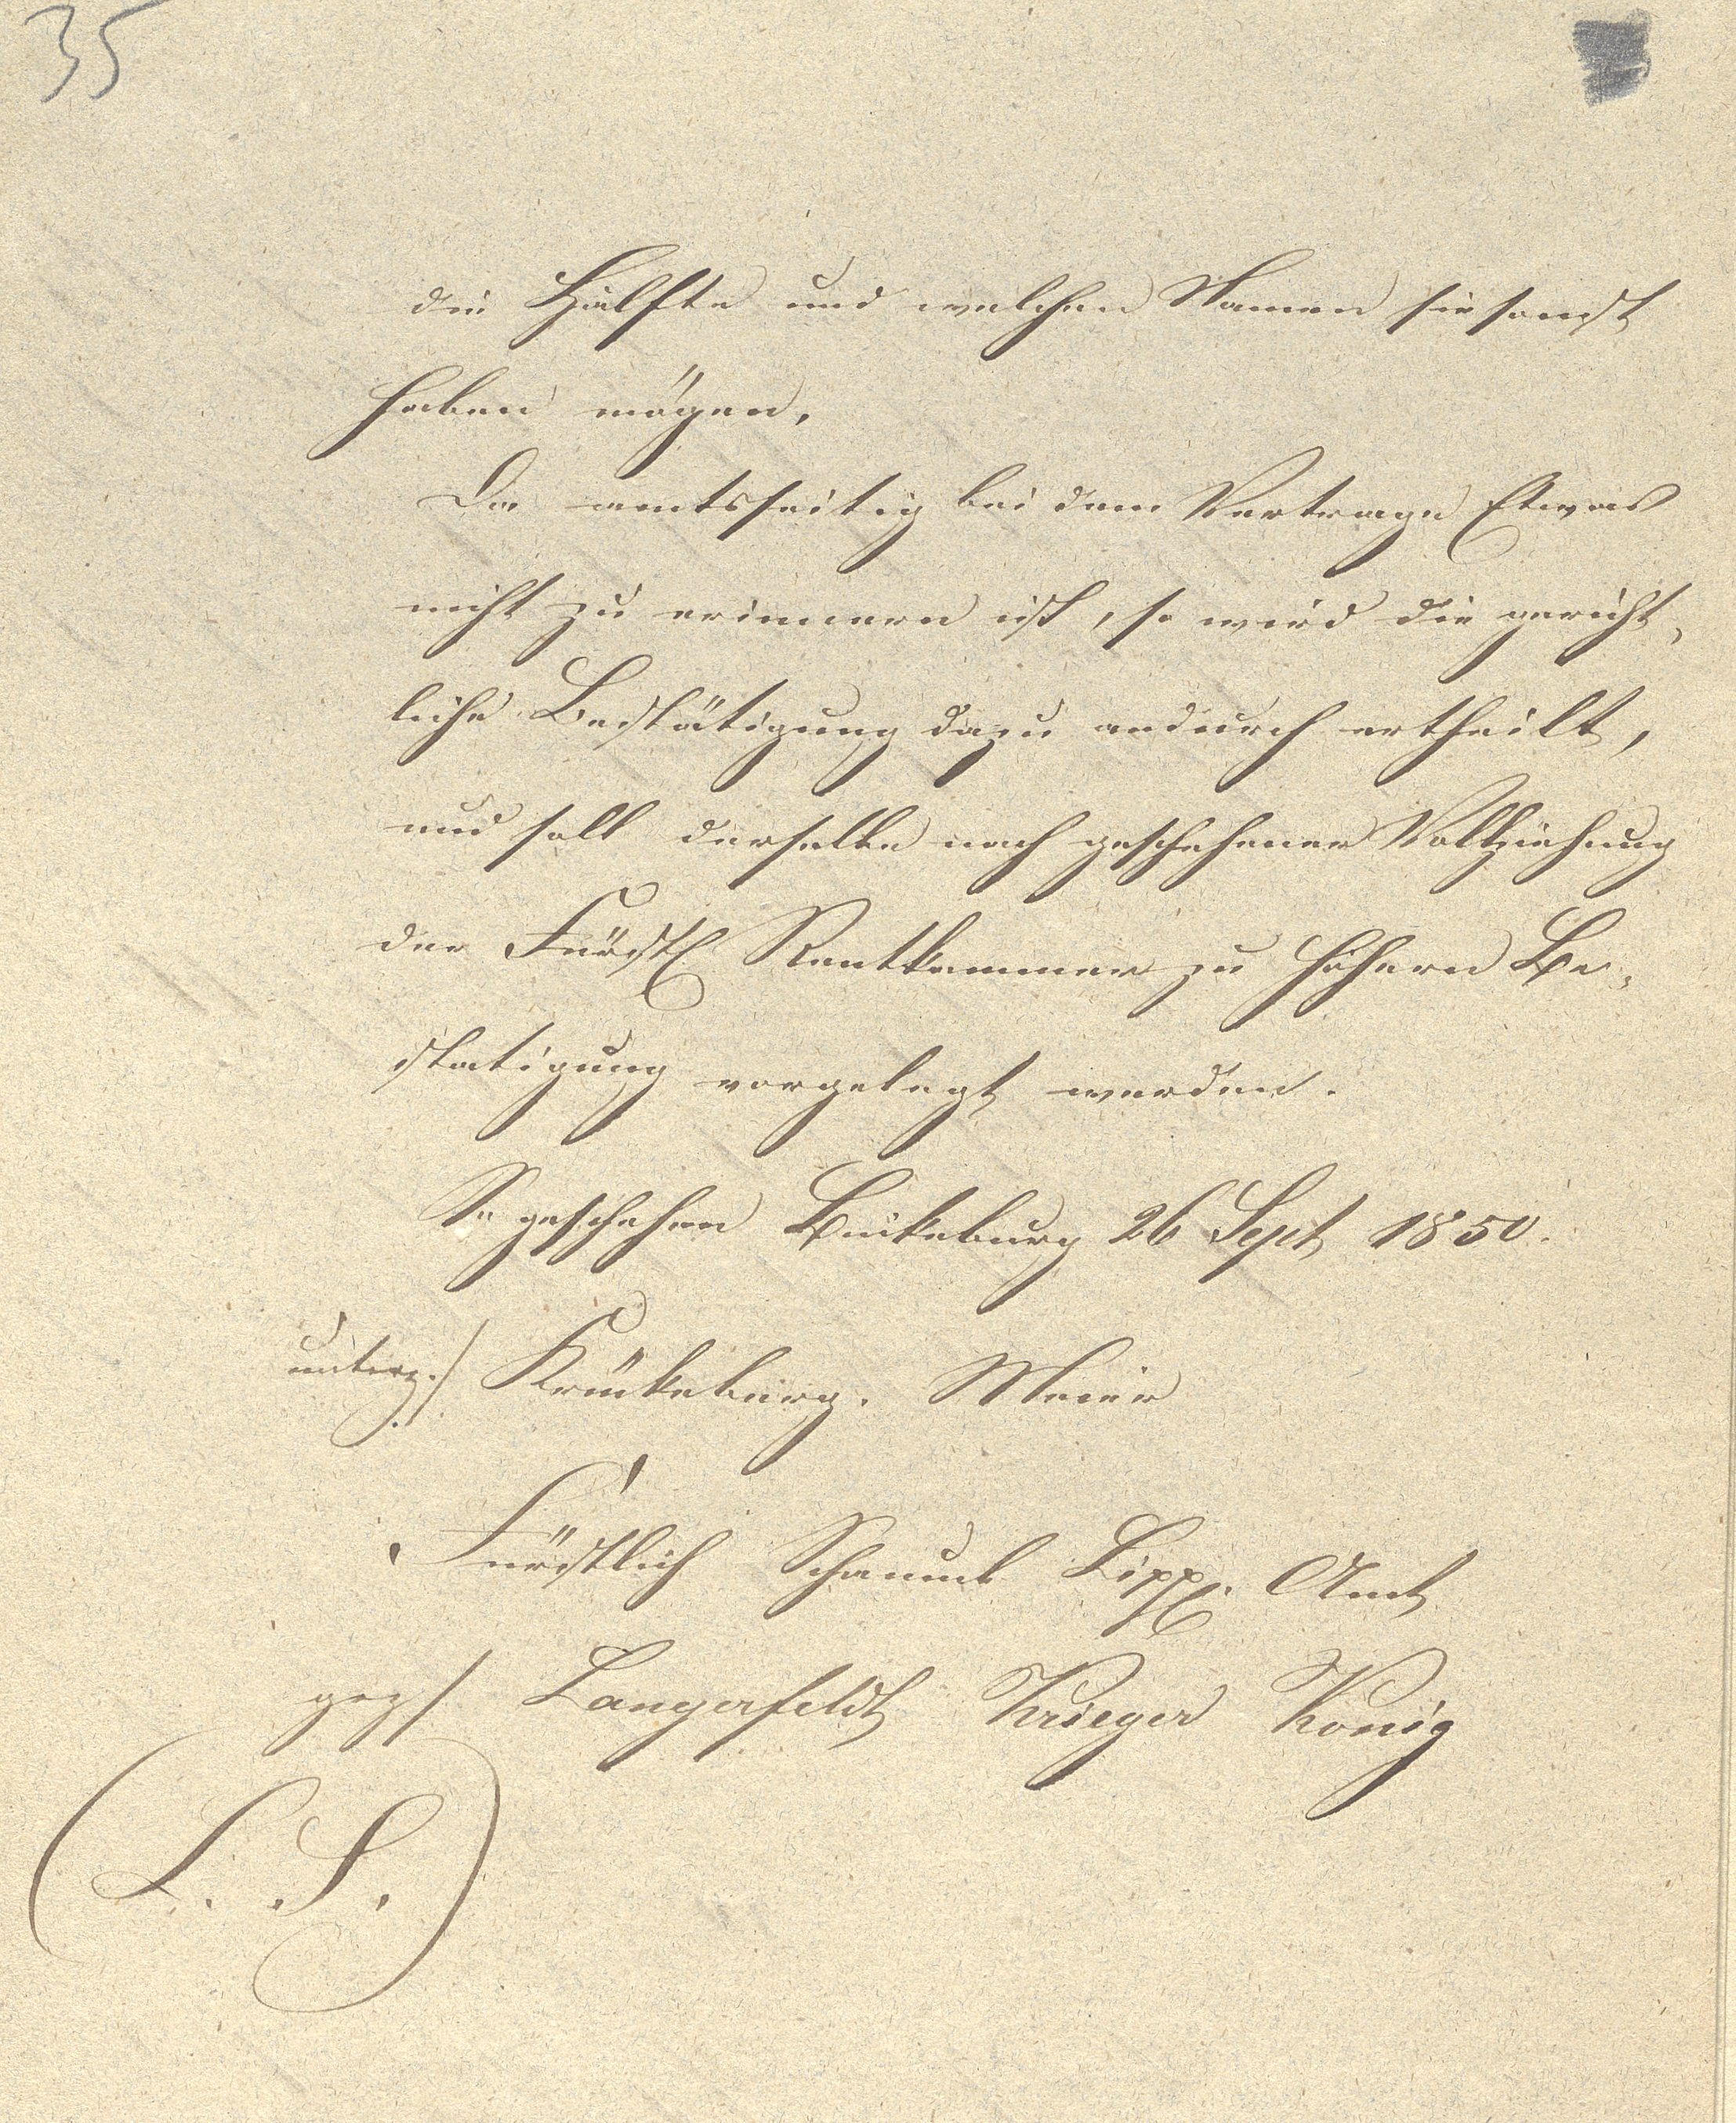 35
die Hälfte und welchen Namen sie sonst
haben mögen.
Da amtsseitig bei dem Vertrage Etwas
nicht zu erinnern ist, so wird die gericht-
liche Bestätigung dazu andurch ertheilt,
und soll derselbe nach geschehener Vollziehung
der Fürstl Rentkammer zu höhern Be-
statigung vorgelegt werden.
So geschehen Bückeburg 26 Sept 1850.
unterz./ Krückeburg. Meier
Fürstlich Schaumb Lippl. Amt
gez/ Langerfeldt Krieger König
(L. S.)